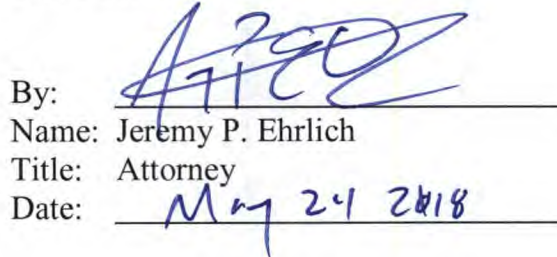 By:
Name: Jeremy P. Ehrlich
Title: Attorney
Date: May 24 2018